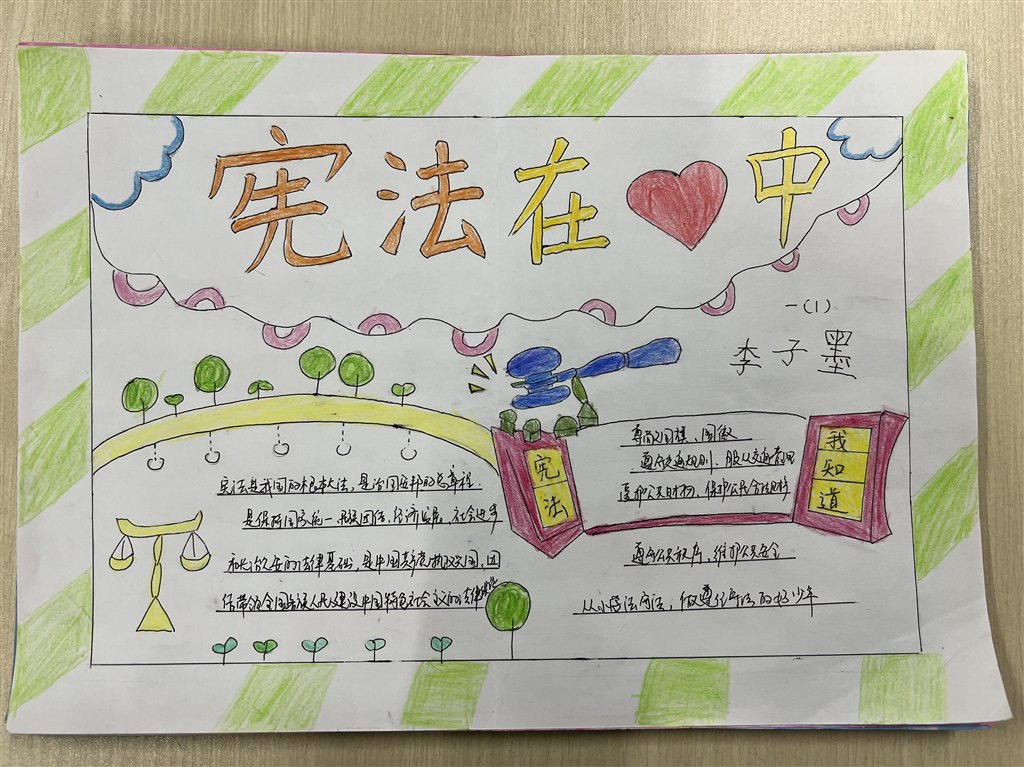 宪法在中
一(1)
李子墨
宪法
我知道
尊敬国旗、国徽
遵守交通规则、服从交通管理
爱护公共财物、保护公民合法财产
遵守公共秩序、维护公共安全
从小学法守法，做遵纪守法的好少年
宪法是我国的根本大法，是治国安邦的总章程.
是保持国家统一、民族团结、经济发展、社会进步
和长治久安的法律基础，是中国共产党执政兴国、团
结带领全国各族人民建设中国特色社会主义的法律